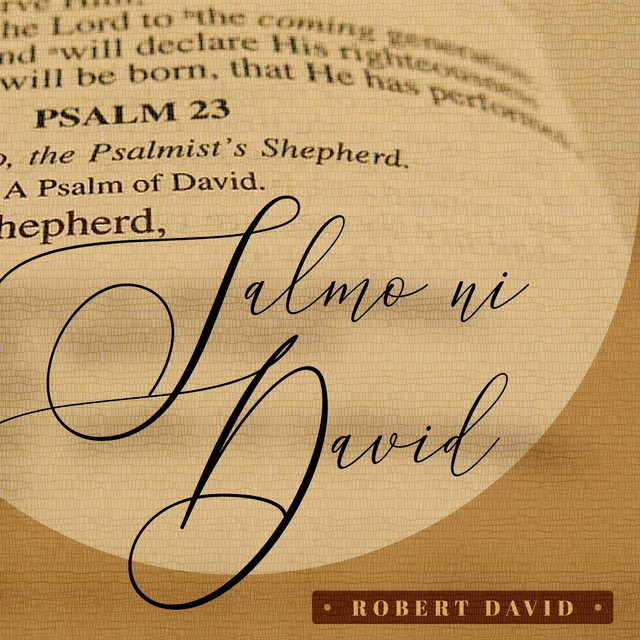 he Lord to ᵇthe coming generation,
nd ᵃwill declare His righteousness
will be born, that He has performed
PSALM 23
, the Psalmist's Shepherd.
A Psalm of David.
hepherd,
Salmo ni
David
ROBERT DAVID